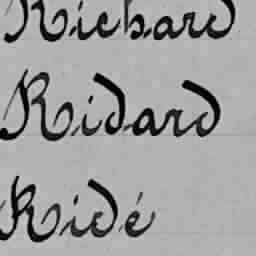 Richard
Ridard
Ridé